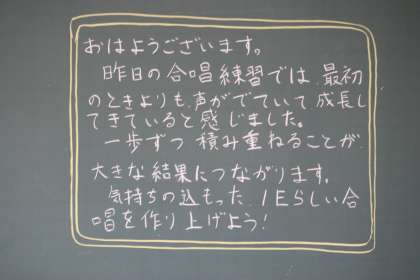 おはようございます。
昨日の合唱練習では、最初
のときよりも、声がでていて、成長し
てきていると感じました。
一歩ずつ積み重ねることが、
大きな結果につながります。
気持ちの込もった、1Eらしい合
唱を作り上げよう!